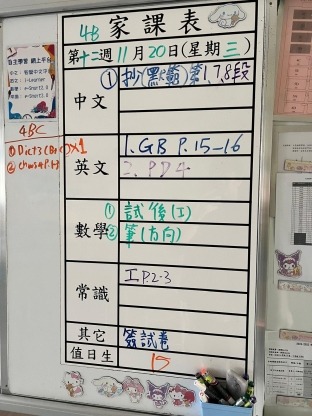 4B 家課表
第十二週 11月20日(星期三)
自主學習 網上平台
中文 ① 抄(黑窩)第1,7,8段
4BC
① Dict3(Bk)x1
英文 1. GB P.15-16
2. PD4
數學 ① 試後(I)
② 筆(方向)
常識 工P.2-3
其它 簽試卷
值日生 15